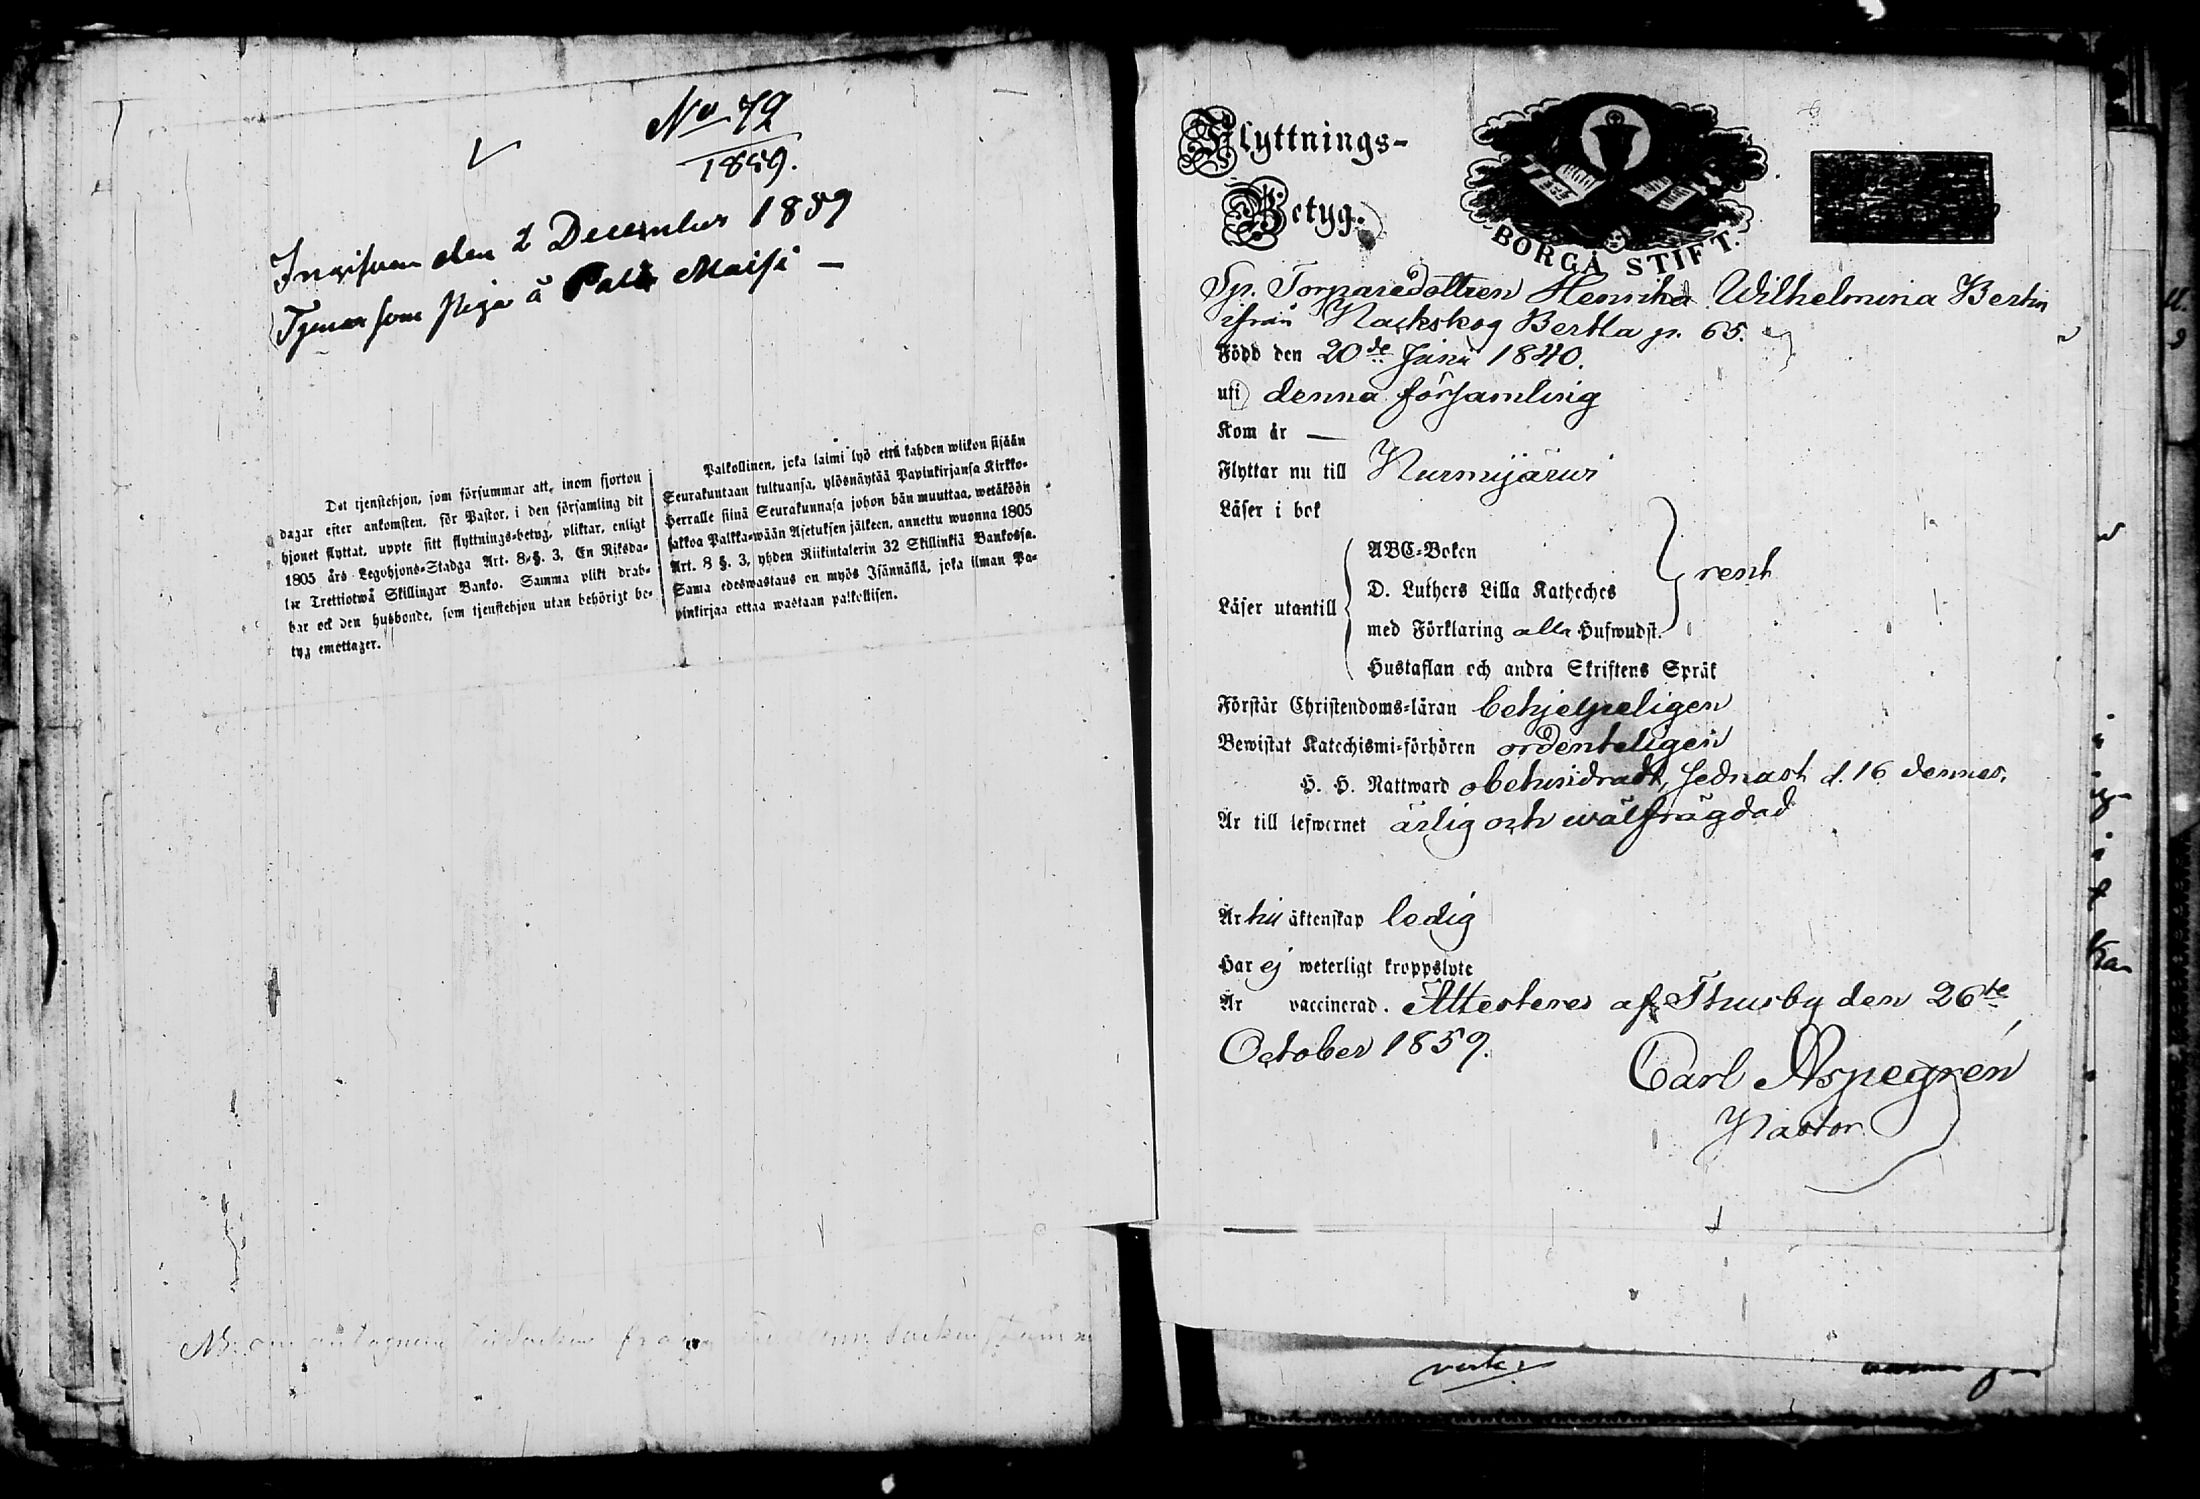 No 72
1859.
den 2 December 1859
Tjenar som piga å Maisi —
Det tjenstehjon, som försummar att, inom fjorton
dagar efter ankomsten, för Pastor, i den församling dit
hjonet flyttat, uppte sitt flyttnings-betyg, pliktar, enligt
1805 års Legohjons-Stadga Art. 8. §. 3. En Riksda-
ler Trettiotwå Skillingar Banko. Samma plikt drab-
bar ock den husbonde, som tjenstehjon utan behörigt be-
tyg emottager.
Palkollinen, joka laimi lyö että kahden wiikon sisään
Seurakuntaan tultuansa, ylösnäytää Papinkirjansa Kirkko-
Herralle siinä Seurakunnasa johon hän muuttaa, wetäköön
sakkoa Palkka-wään Asetuksen jälkeen, annettu wuonna 1805
Art. 8 §. 3, yhden Riikintalerin 32 Skillinkiä Bankossa.
Sama edeswastaus on myös Isännällä, joka ilman Pa-
pinkirjaa ottaa wastaan palkollisen.
Flyttnings-
Betyg.
BORGÅ STIFT.
Torparedottren Henrika Wilhelmina Bertin
ifrån Nackskog Bertla p. 65.
Född den 20de Juni 1840.
uti denna församling
Kom år —
Flyttar nu till Nurmijärwi
Läser i bok
ABC-Boken
D. Luthers Lilla Katheches
rent
Läser utantill
med Förklaring alla Hufwudst.
Hustaflan och andra Skriftens Språk
Förstår Christendoms-läran behjelpeligen
Bewistat Katechismi-förhören ordenteligen
H. H. Nattward obehindradt, sednast d. 16 dennes.
Är till lefwernet ärlig och wälfrägdad
Är till äktenskap ledig
Har ej weterligt kroppslyte
Är vaccinerad. Attesteres af Thusby den 26te
October 1859.
Carl Aspegrén
Pastor